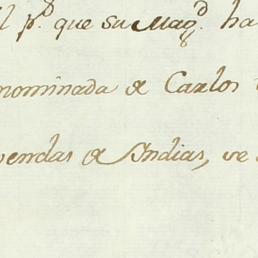 l p.º que su Mag.d ha
nominada de Carlos
vendas de Indias, se